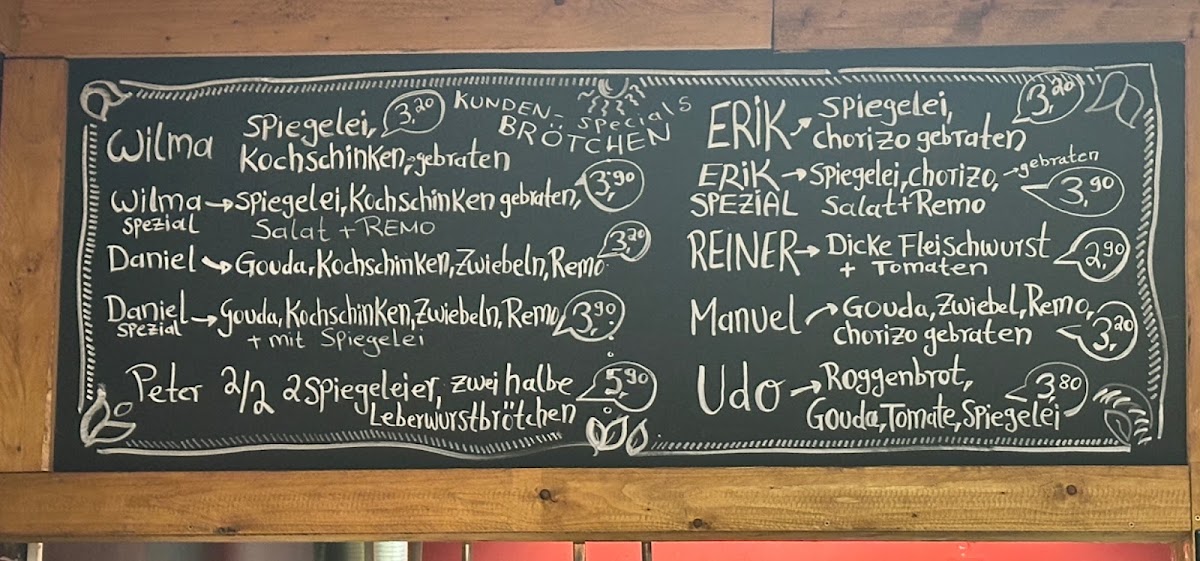 KUNDEN-
specials
BRÖTCHEN
Wilma Spiegelei, 3,20
Kochschinken, gebraten
Wilma → Spiegelei, Kochschinken gebraten, 3,90
Spezial Salat + REMO
Daniel → Gouda, Kochschinken, Zwiebeln, Remo 3,20
Daniel → Gouda, Kochschinken, Zwiebeln, Remo, 3,90
Spezial + mit Spiegelei
Peter 2/2 2 Spiegeleier, zwei halbe 5,90
Leberwurstbrötchen
ERIK → Spiegelei, 3,20
chorizo gebraten
ERIK → Spiegelei, chorizo, → gebraten 3,90
SPEZIAL Salat + Remo
REINER → Dicke Fleischwurst 2,90
+ Tomaten
Manuel → Gouda, Zwiebel, Remo,
chorizo gebraten 3,20
Udo → Roggenbrot, 3,80
Gouda, Tomate, Spiegelei